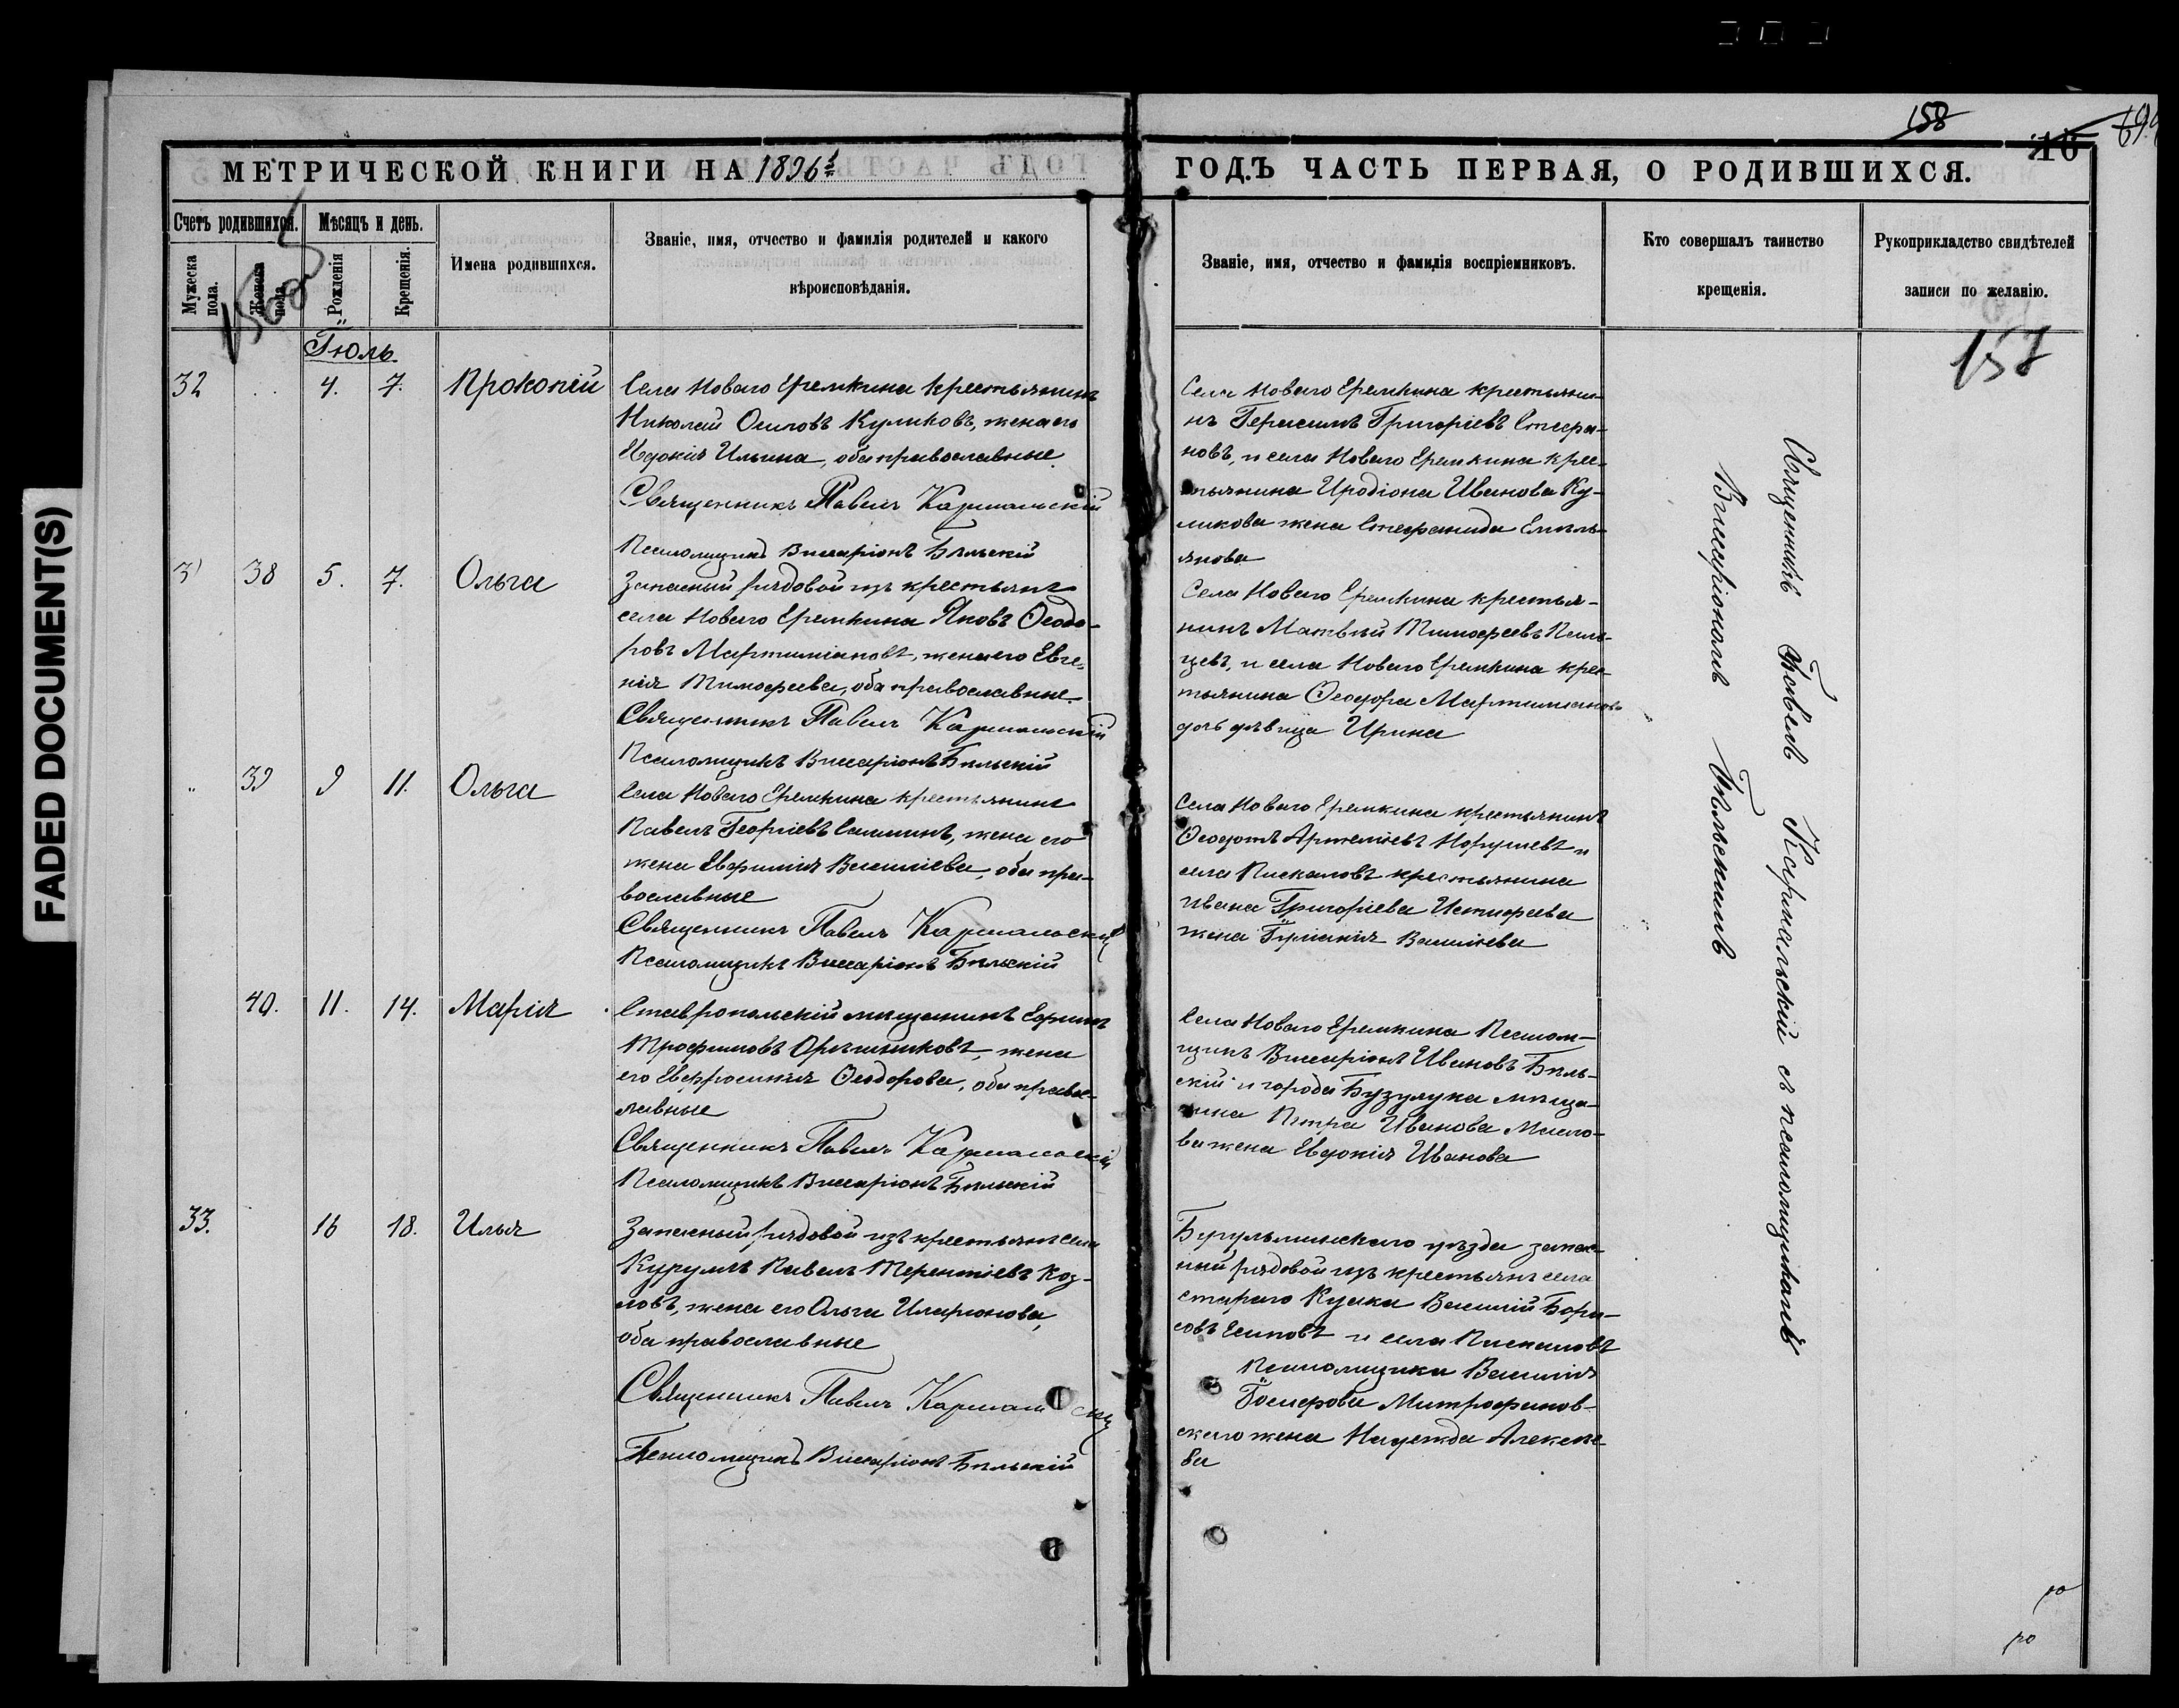 158
16
FADED DOCUMENT(S)
МЕТРИЧЕСКОЙ КНИГИ НА 1896й
ГОДЪ ЧАСТЬ ПЕРВАЯ, О РОДИВШИХСЯ.
Счетъ родившихся.
Мужеска пола.
Женска пола.
Мѣсяцъ и день.
Рожденія
Крещенія.
Имена родившихся.
Званіе, имя, отчество и фамилія родителей и какого
вѣроисповѣданія.
Званіе, имя, отчество и фамилія воспріемниковъ.
Кто совершалъ таинство
крещенія.
Рукоприкладство свидѣтелей
записи по желанію.
157
Іюль
32 4. 7. Прокопій
Села Новаго Еремкина крестьянинъ
Николай Осиповъ Куликовъ, жена его
Евдокія Ильина, оба православные
Священникъ Павелъ Кармальскій
Псаломщикъ Виссаріонъ Бѣльскій
Села Новаго Еремкина крестьяни-
нъ Герасимъ Григоріевъ Стефа-
новъ, и села Новаго Еремкина крес-
тьянина Иродіона Иванова Ку-
ликова жена Стефанида Емель-
янова
38 5. 7. Ольга
Запасный рядовой изъ крестьянъ
села Новаго Еремкина Яковъ Ѳеодо-
ровъ Мартиміановъ, жена его Евге-
нія Тимофеева, оба православные.
Священникъ Павелъ Кармальскій
Псаломщикъ Виссаріонъ Бѣльскій
Села Новаго Еремкина крестья-
нинъ Матвѣй Тимофеевъ
и села Новаго Еремкина крес-
тьянина Ѳеодора Мартиміанова
дочь дѣвица Ирина
39 9 11. Ольга
Села Новаго Еремкина крестьянинъ
Павелъ Георгіевъ жена его
жена Евфимія Василіева, оба пра-
вославные
Священникъ Павелъ Кармальскій
Псаломщикъ Виссаріонъ Бѣльскій
Села Новаго Еремкина крестьянинъ
Ѳеодотъ Артеміевъ и
села Пискаловъ крестьянина
Ивана Григоріева
жена Іуліанія Василіева
40. 11. 14. Марія
Ставропольскій мѣщанинъ Ефимъ
Трофимовъ Орѣшниковъ, жена
его Евфросинія Ѳеодорова, оба правос-
лавные
Священникъ Павелъ Кармальскій
Псаломщикъ Виссаріонъ Бѣльскій
Села Новаго Еремкина Псалом-
щикъ Виссаріонъ Ивановъ Бѣль-
скій и города Бузулука мѣща-
нина Петра Иванова Масло-
ва жена Евдокія Иванова
33. 16 18. Илья
Запасный рядовой изъ крестьянъ села
Павелъ Терентіевъ Коз-
ловъ, жена его Ольга Иларіонова,
оба православные
Священникъ Павелъ Кармальскій
Псаломщикъ Виссаріонъ Бѣльскій
Бугульминскаго уѣзда запас-
ный рядовой изъ крестьянъ села
стараго Василій Бори-
совъ Есиповъ и села Пискаловъ
Псаломщика Василія
Іосифова Митрофанов-
скаго жена Надежда Алексѣе-
ва
Священникъ Павелъ Кармальскій съ псаломщикомъ
Виссаріономъ Бѣльскимъ